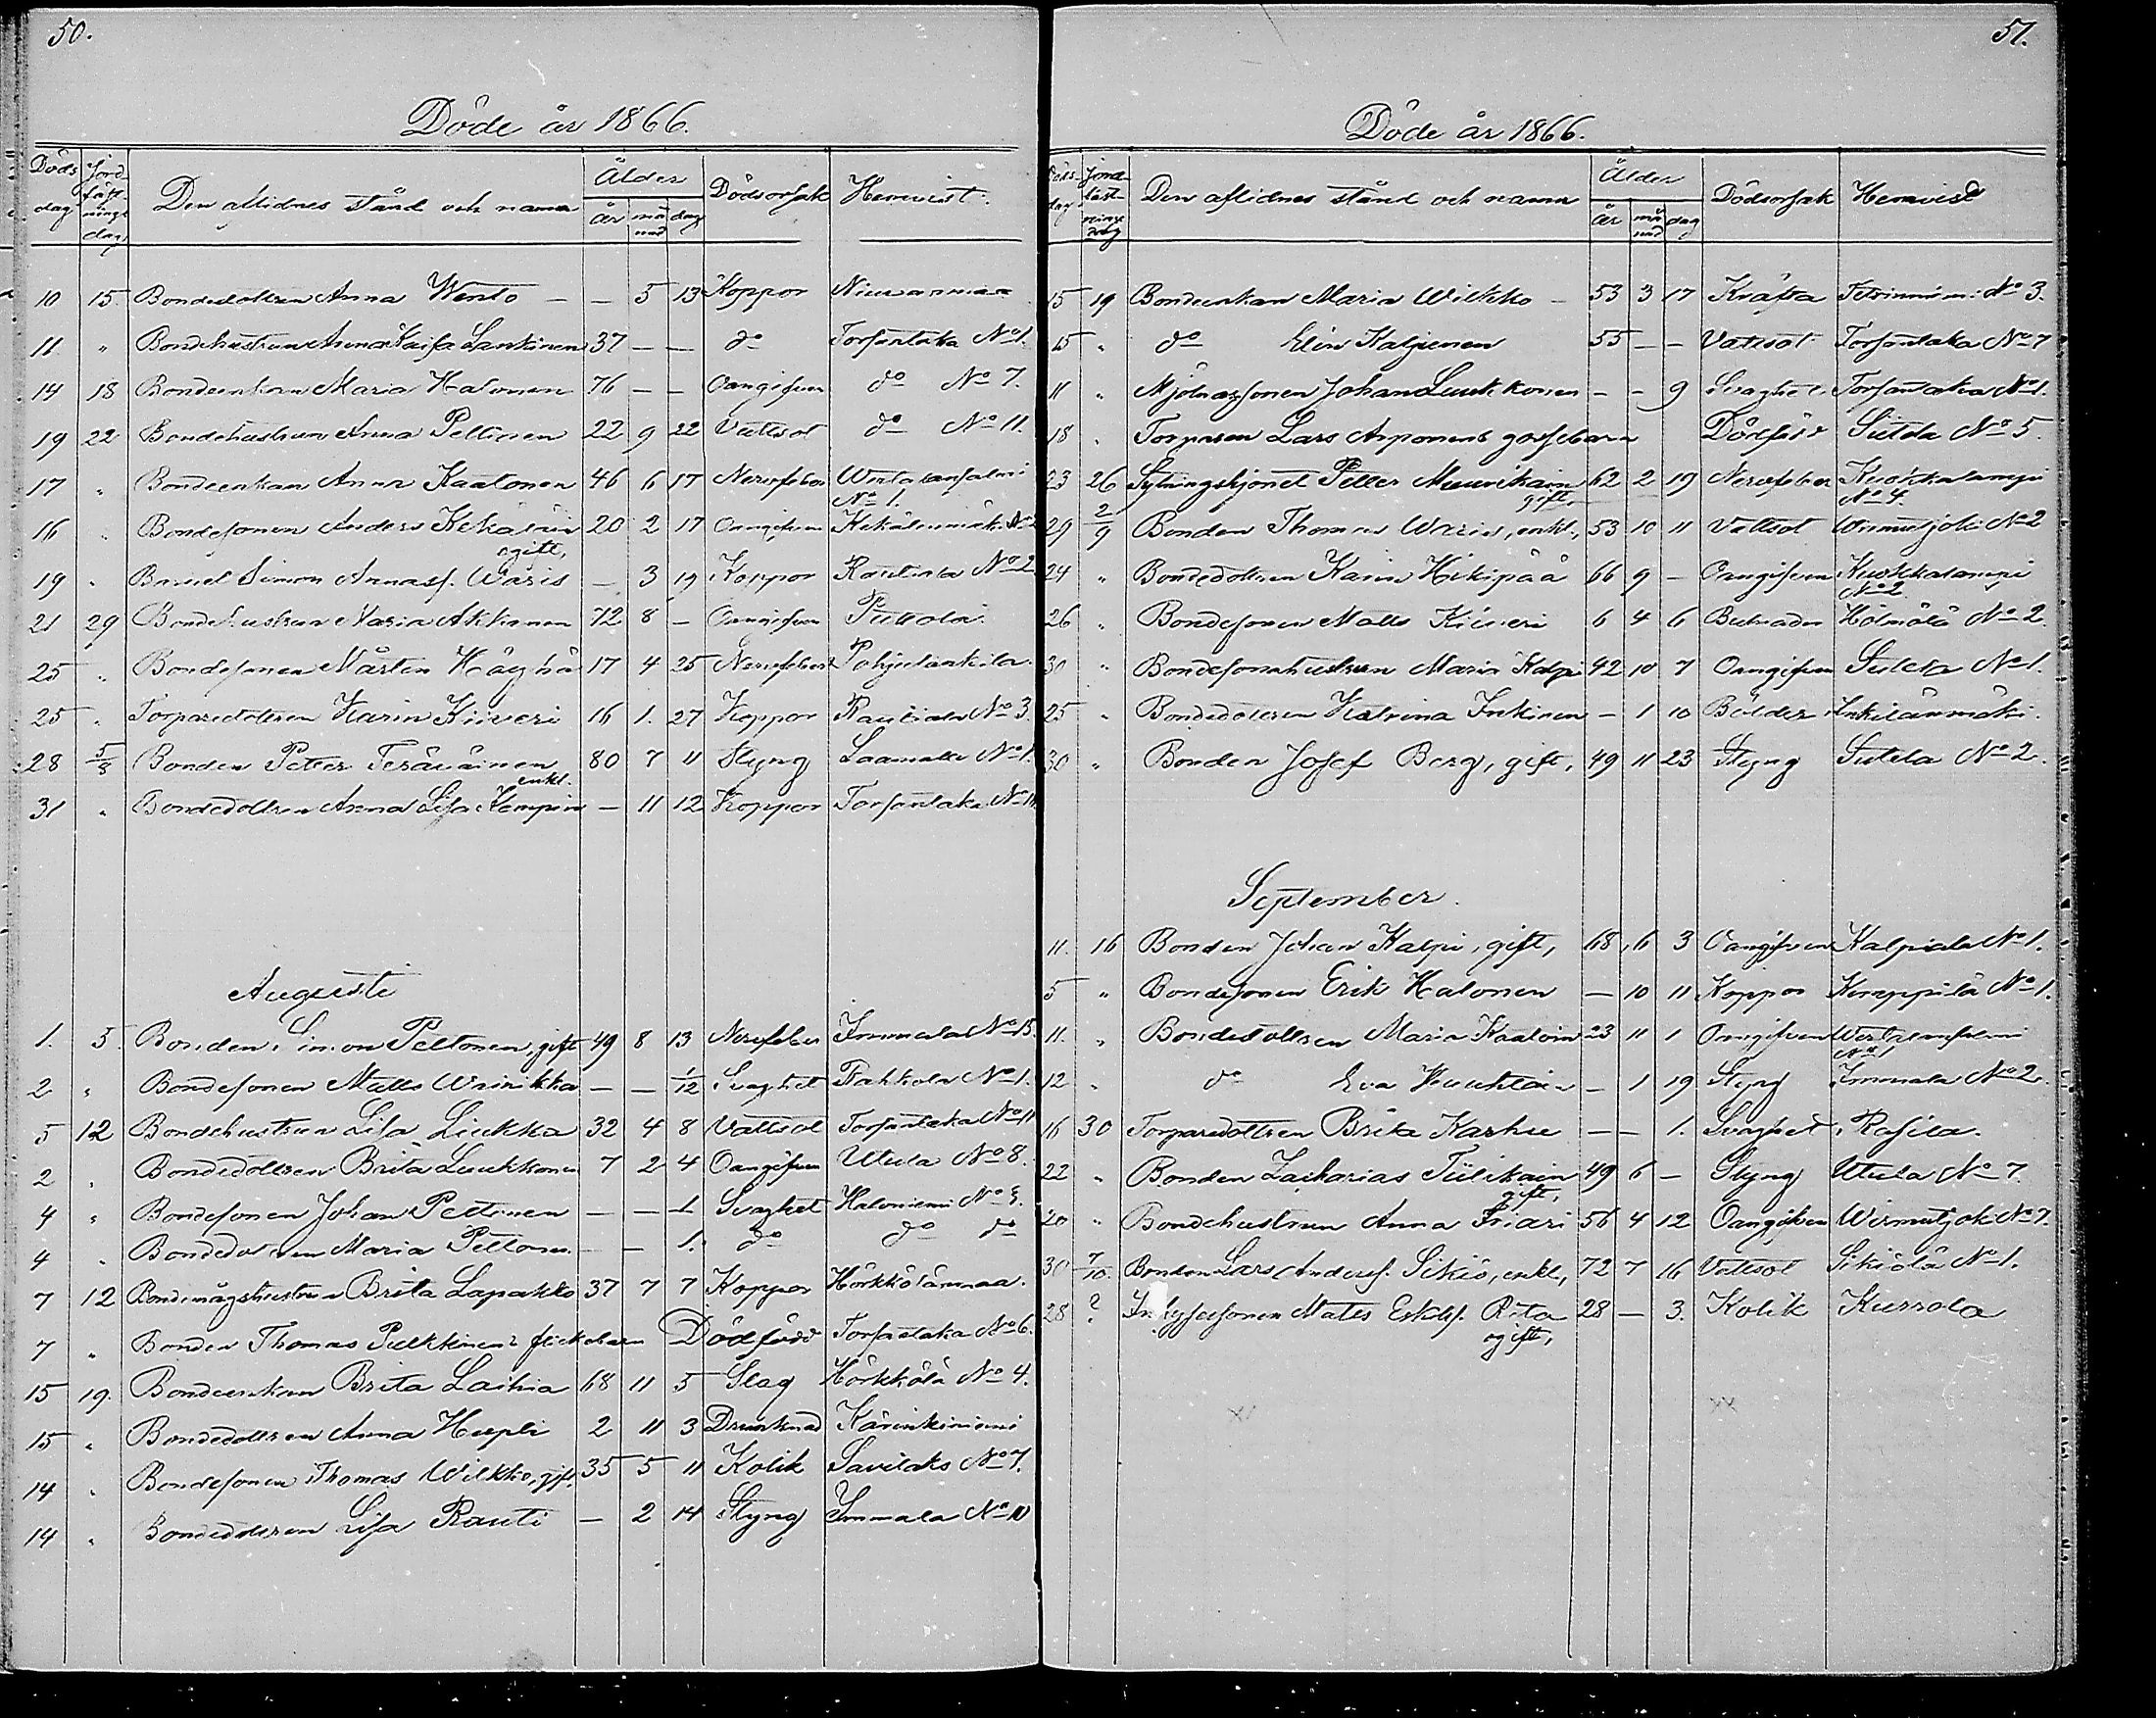 50.
Döde år 1866.
Döds dag Jordfästnings dag Den aflidnes stånd och namn Ålder år månad dag Dödsorsak Hemvist.
10 15 Bondedottren Anna Wento — — 5 13 Koppor Niuvaanmaa
11 " Bondehustrun Anna Kaisa Lankinen 37 — — do Torsantaka No 1.
14 18 Bondeenkan Maria Halonen 76 — — Oangifven do No 7.
19 22 Bondehustrun Anna Peltinen 22 9 22 Vattsot do No 11.
17 " Bondeenkan Anna Kaatonen 46 6 17 Nervfeber
No 1.
16 " Bondesonen Anders Kekäläin 20 2 17 Oangifven Kekäleinmäki No 2
ogift,
19 " Simon Annasf. Wäris — 3 19 Koppor Rautiala No 2
21 29 Bondehustrun Maria Akkanen 72 8 — Oangifven
25 " Bondesonen Mårten Häyhä 17 4 25 Nervfeber Pohjalankila
25 " Torparedottren Karin Kiiveri 16 1. 27 Koppor Rautiala No 3.
28 5/8 Bonden Petter Teräväinen 80 7 11 Styng No 1.
enkl.
31 " Bondedottren Anna Lisa Kempin — 11 12 Koppor Torsantaka No 11
Augusti
1. 5. Bonden Simon Peltonen, gift 49 8 13 Nervfeber Immala No 15.
2 " Bondesonen Matts Wainikka — — 1/12 Svaghet No 1.
5 12 Bondehustrun Lisa Liukka 32 4 8 Vattsot Torsantaka No 11
2 " Bondedottren Brita Luukkonen 7 2 4 Oangifven Utula No 8.
4 " Bondesonen Johan Peltonen — — 1 Svaghet Haloniemi No 5.
4 " Bondedottren Maria Peltonen — — 1. do do do
7 12 Bondmågshustrun Brita Lapakko 37 7 7 Koppor Hörkkölänmaa.
7 " Bonden Thomas Pulkkinens flickebarn Dödfödd Torsantaka No 6.
15 19. Bondeenkan Brita Laihia 68 11 5 Slag Hörkkölä No 4.
15 " Bondedottren Anna Hupli 2 11 3 Drunknad Kärinkiniemi
14 " Bondesonen Thomas Wilkko, gift. 35 5 11 Kolik Savilaks No 7.
14 " Bondedottren Lisa Rauti — 2 14 Styng Immala No 10
51.
Döde år 1866.
Döds dag Jordfästnings dag Den aflidnes stånd och namn Ålder år månad dag Dödsorsak Hemvist
15 19 Bondeenkan Maria Wilkko — 53 3 17 Kräfta Tetriniemi No 3.
15 " do Elin Kalpinen 55 — — Vattsot Torsantaka No 7
11 " Mjölnarsonen Johan Luukkonen — — 9 Svaghet Torsantaka No 1.
18 " Torparen Lars Arponens gossebarn Dödfödd Sutela No 5.
23 26 Sytningshjonet Petter Muurikain 62 2 19 Nervfeber Kuokkalampi
gift. No 4.
29 2/9 Bonden Thomas Waris, enkl., 53 10 11 Vattsot Wirmutjoki No 2
24 " Bondedottren Karin Hikipää 66 9 — Oangifven Kuokkalampi
No 2
26 " Bondesonen Matts Kiiveri 6 4 6 Bulnader Hölmälä No 2.
30 " Bondesonshustrun Maria Kalpi 42 10 7 Oangifven Sutela No 1.
25 " Bondedottren Katrina Inkinen — 1 10 Bölder Inkilänmäki.
30 " Bonden Josef Borg, gift, 49 11 23 Styng Sutela No 2.
September.
11. 16 Bonden Johan Kalpi, gift, 68 6 3 Oangifven Kalpiala No 1.
5 " Bondesonen Erik Halonen — 10 11 Koppor Kemppilä No 1.
11. " Bondedottren Maria Kaatoin 23 11 1 Oangifven
No 1
12 " do Eva — 1 19 Styng Immala No 2.
16 30 Torparedottren Brita Karhu — — 1. Svaghet Rasila.
22 " Bonden Zacharias Tiilikain 49 6 — Styng Utula No 7.
gift,
20 " Bondehustrun Anna Friari 56 4 12 Oangifven Wirmutjoki No 7.
30 7/10. Bonden Lars Andersf. Sikiö, enkl., 72 7 16 Vattsot Sikiölä No 1.
28 ? Inhysessonen Mats Eskilsf. Rita 28 — 3. Kolik Kurrola
ogift,